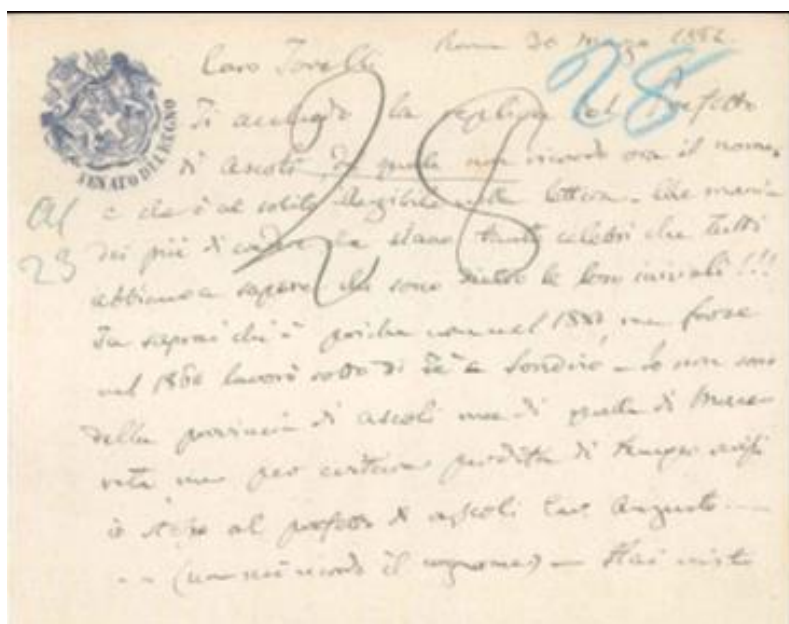 Roma 30 Marzo 1882.
Caro Torelli
28
28
Ti accludo la replica del Prefetto
di Ascoli del quale non ricordo ora il nome,
e che è al solito illegibile nella lettera. Che mania
dei più di credere che siano tanto celebri che tutti
abbiano a sapere chi sono dietro le loro iniziali!!!
Tu saprai chi è poiché non nel 1880 ma forse
nel 1860 lavorò sotto di Te a Sondrio. Io non sono
della provincia di Ascoli ma di quella di Mace-
rata ma per evitare perdita di tempo scrissi
io stesso al prefetto di Ascoli Cav Augusto
(non mi ricordo il cognome) — Hai visto
SENATO DEL REGNO
23